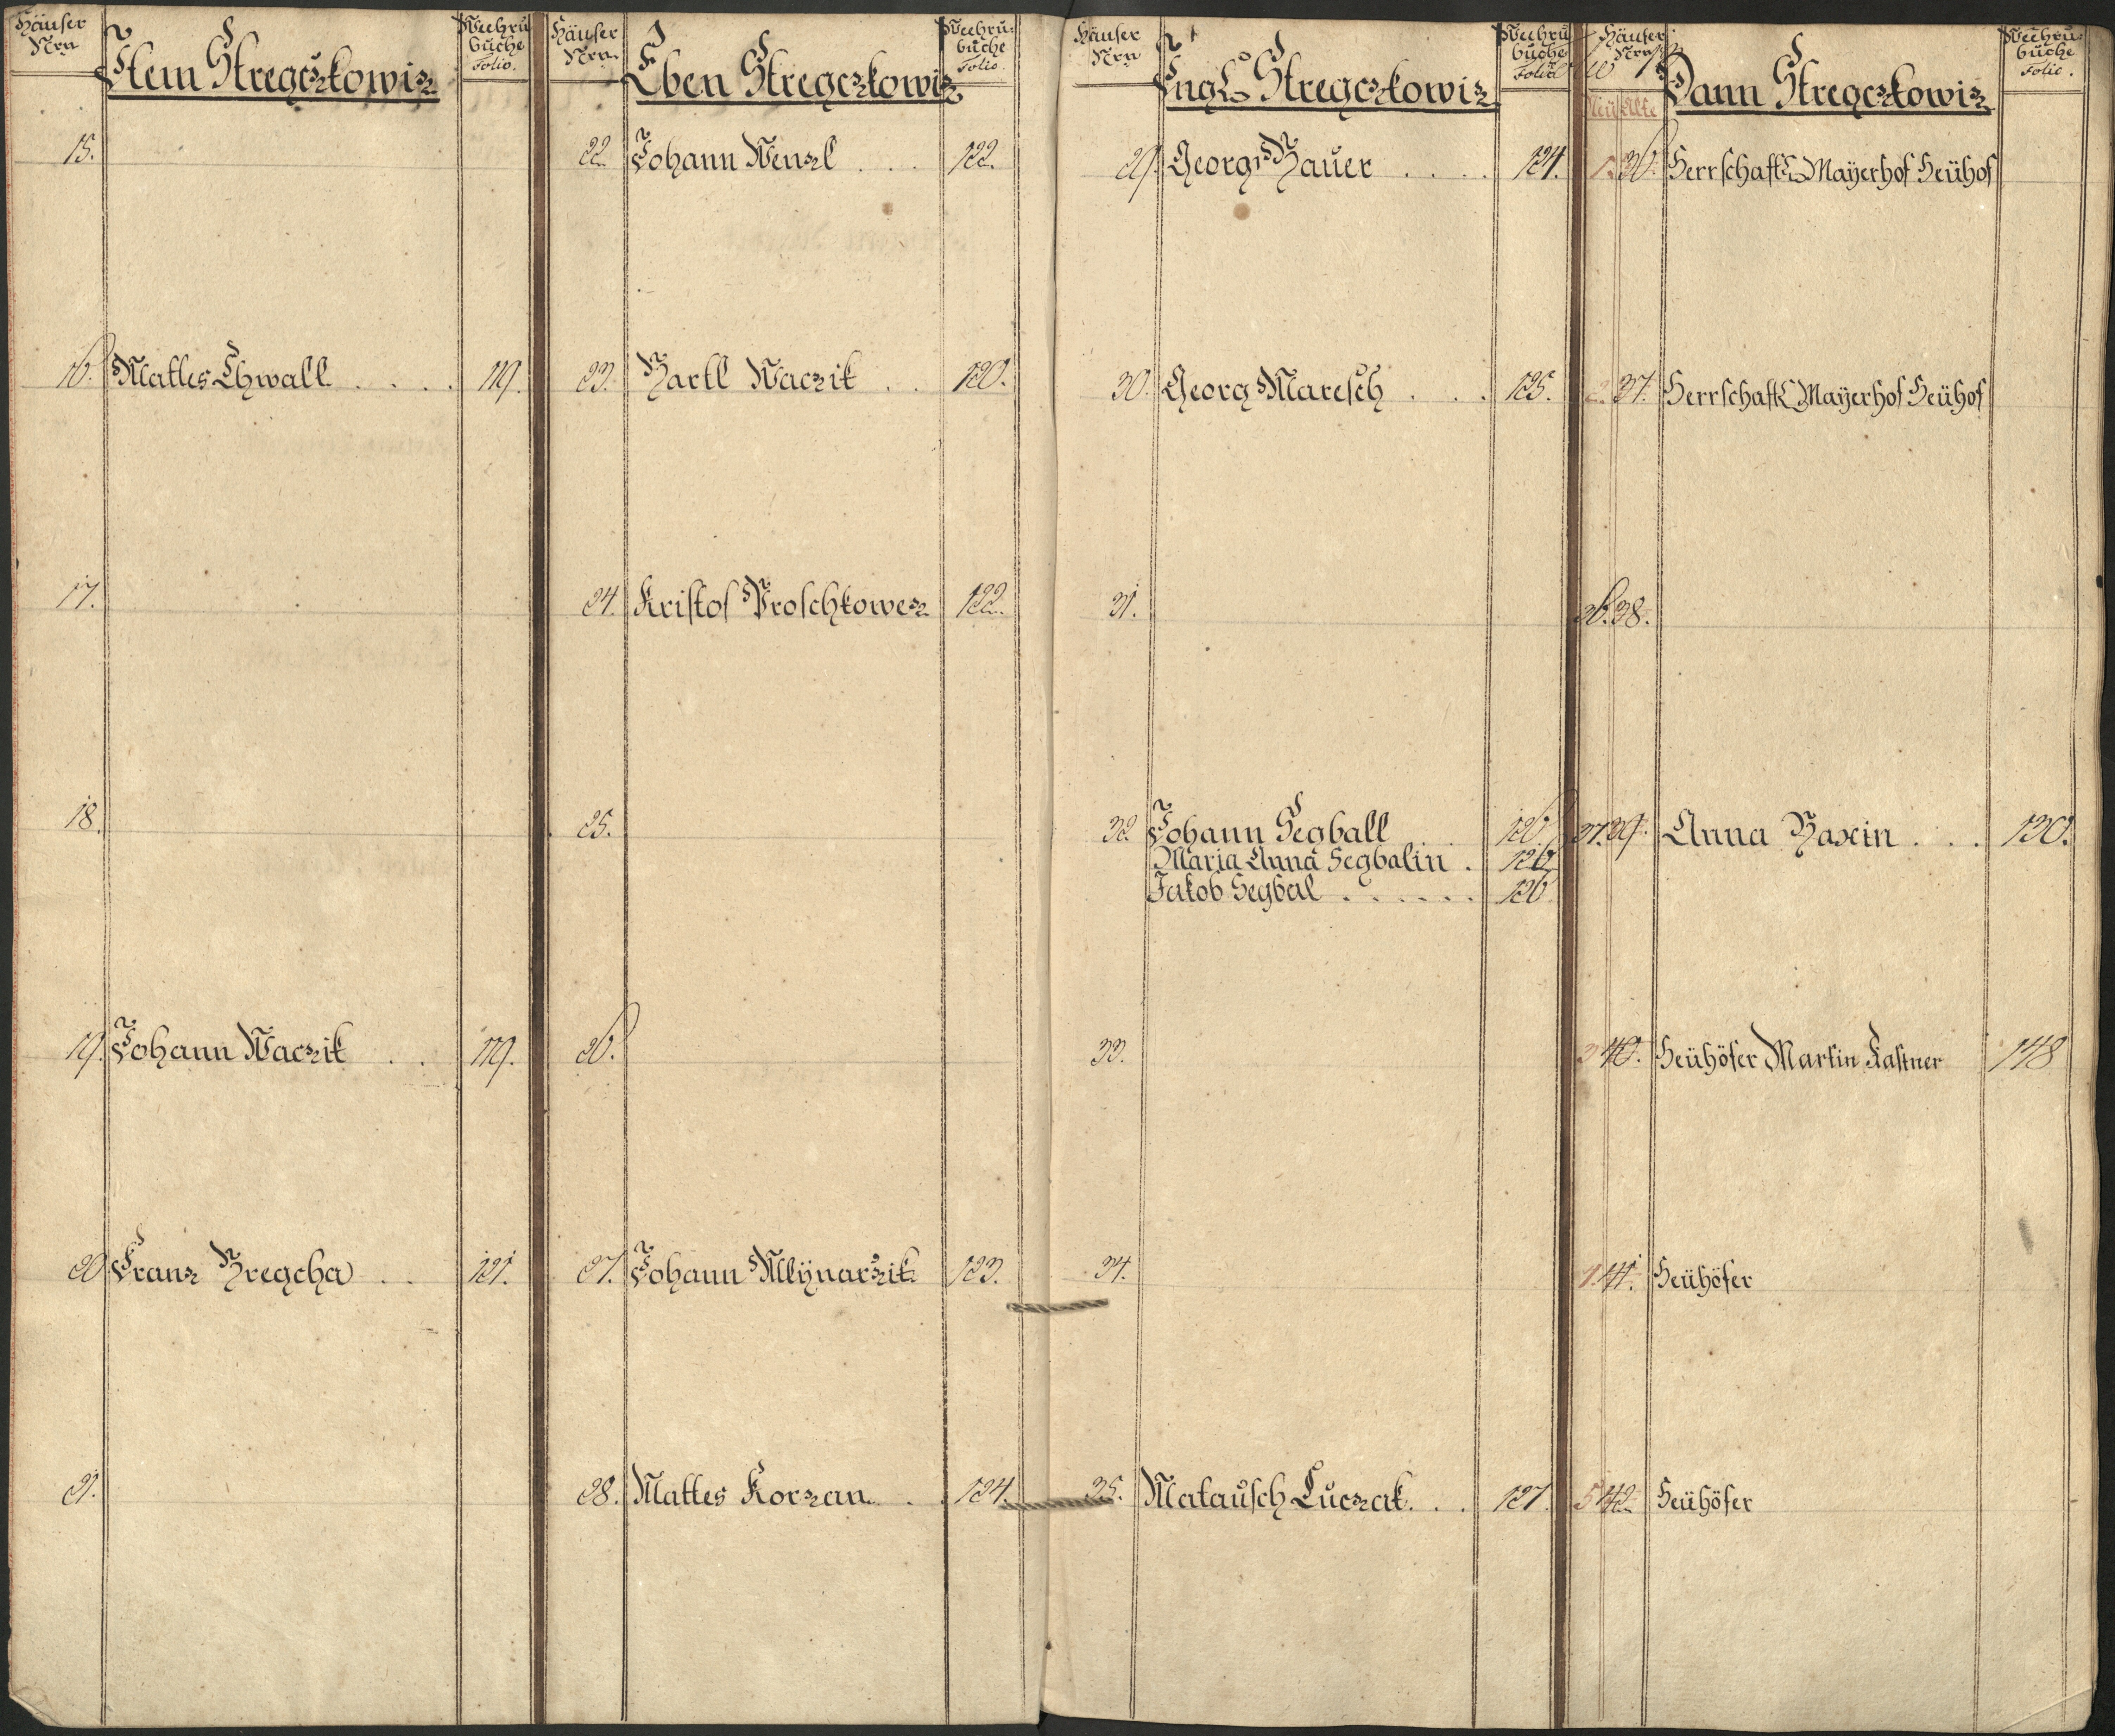 Häuser
Nrn
Item Stregczkowiz
buchs
Folio.
15.
16. Mattes Chwall . . . . 119.
17.
18.
19. Johann Waczik . . 119.
20 Franz Bregcha . . 121.
21.
Häuser
Nrn.
Eben Stregczkowiz
buchs
Folio.
22. Johann Wenzl . . . 122.
23. Bartl Waczik . . 120.
24. Kristof Proschkowez 122.
25.
26.
27. Johann Mlÿnarzik 123.
28. Mattes Korzan . . 124.
Häuser
Nrn
Stregczkowiz
buchs
Folio
29. Georg Bauer . . . . 124.
30. Georg Maresch . . . 125.
31.
32. Johann Segball 126
Maria Anna Segbalin . 126
Jakob Segbal . . . . . . 126
33.
34.
35. Matausch Luczak . . . 127.
Häuser
Nrn
Dann Stregczkowiz
buchs
Folio.
Neü Alte
1. 36. Herrschaftl Maÿerhof Heühof
2. 37. Herrschaftl Maÿerhof Heühof
36. 38.
37. 39. Anna Baxin . . . 130.
3 40. Heühöfer Martin Kastner 148
4. 41. Heühöfer
5 42. Heühöfer